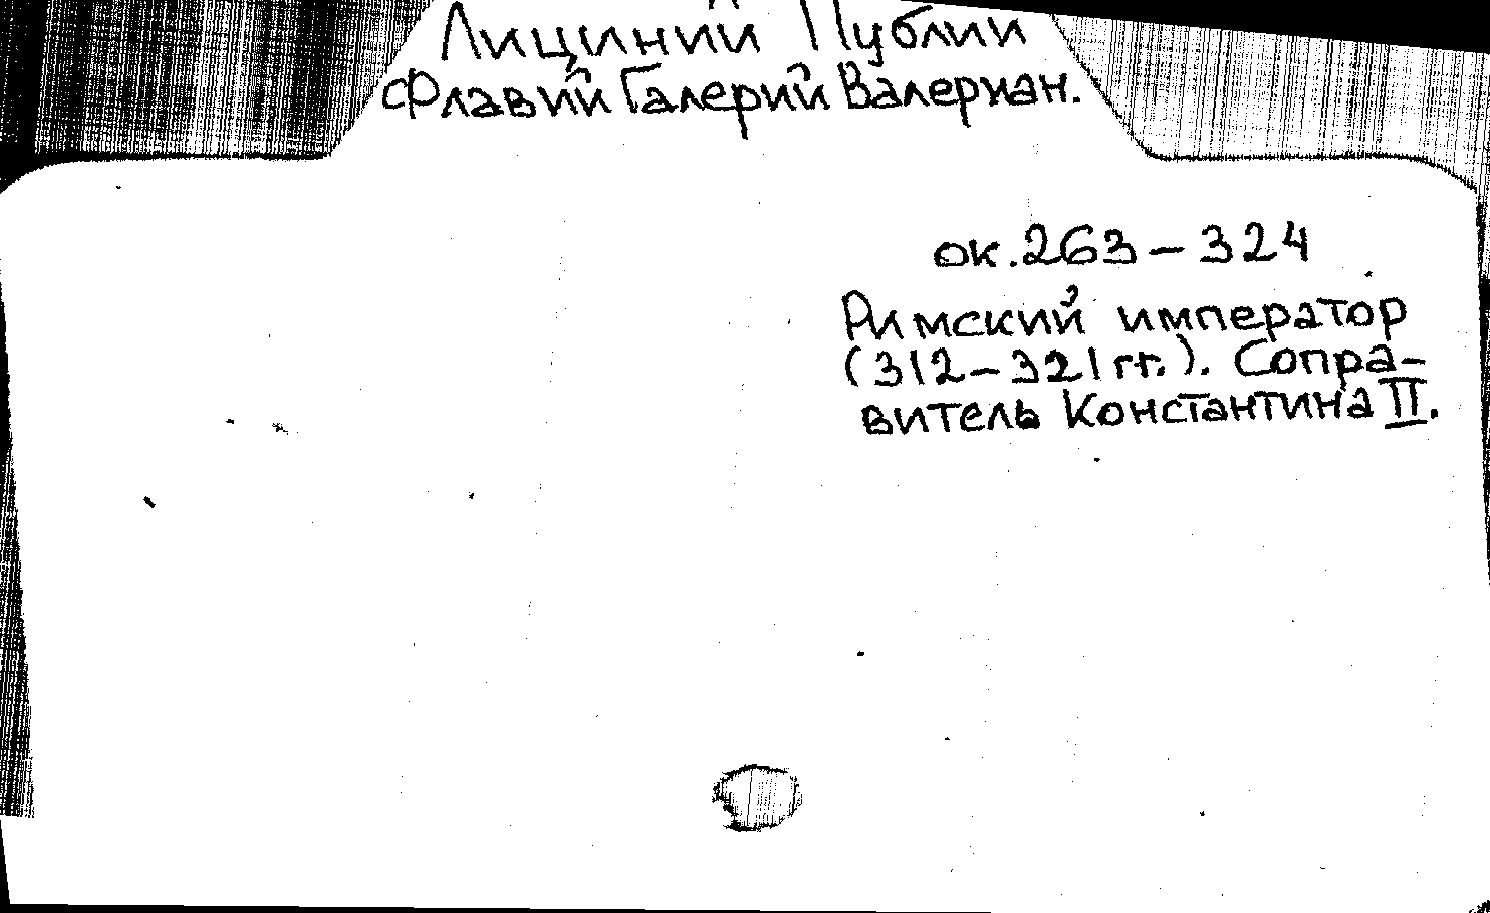 Лициний Публий
Флавий Галерий Валериан.
ок. 263 – 324
Римский император
(312 – 321 гг.). Сопра-
витель Константина II.